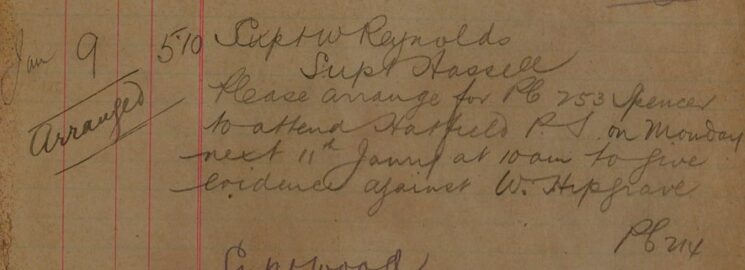 Jan 9 510 Supt W Reynolds
Supt Hassell
Arranged
Please arrange for PC 253 Spencer
to attend Hatfield P.S. on Monday
next 11th January at 10 am to give
evidence against W. Hipgrave
PC 214
Supt Wood